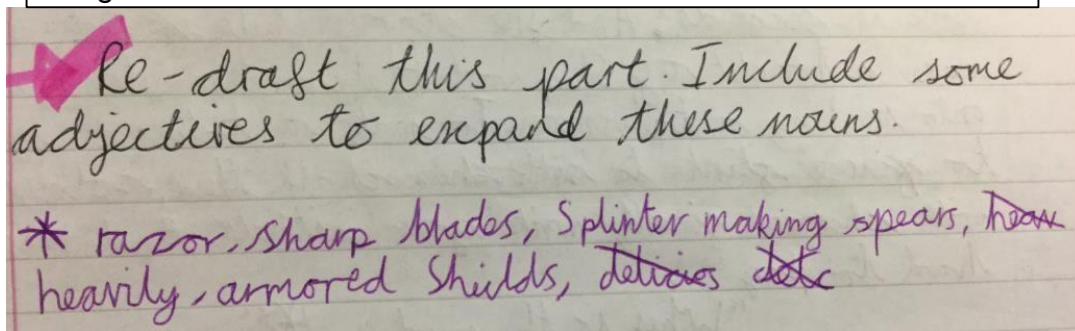 Re-draft this part. Include some
adjectives to expand these nouns.
* razor, sharp blades, Splinter making spears, heav
heavily, armored Sheilds,